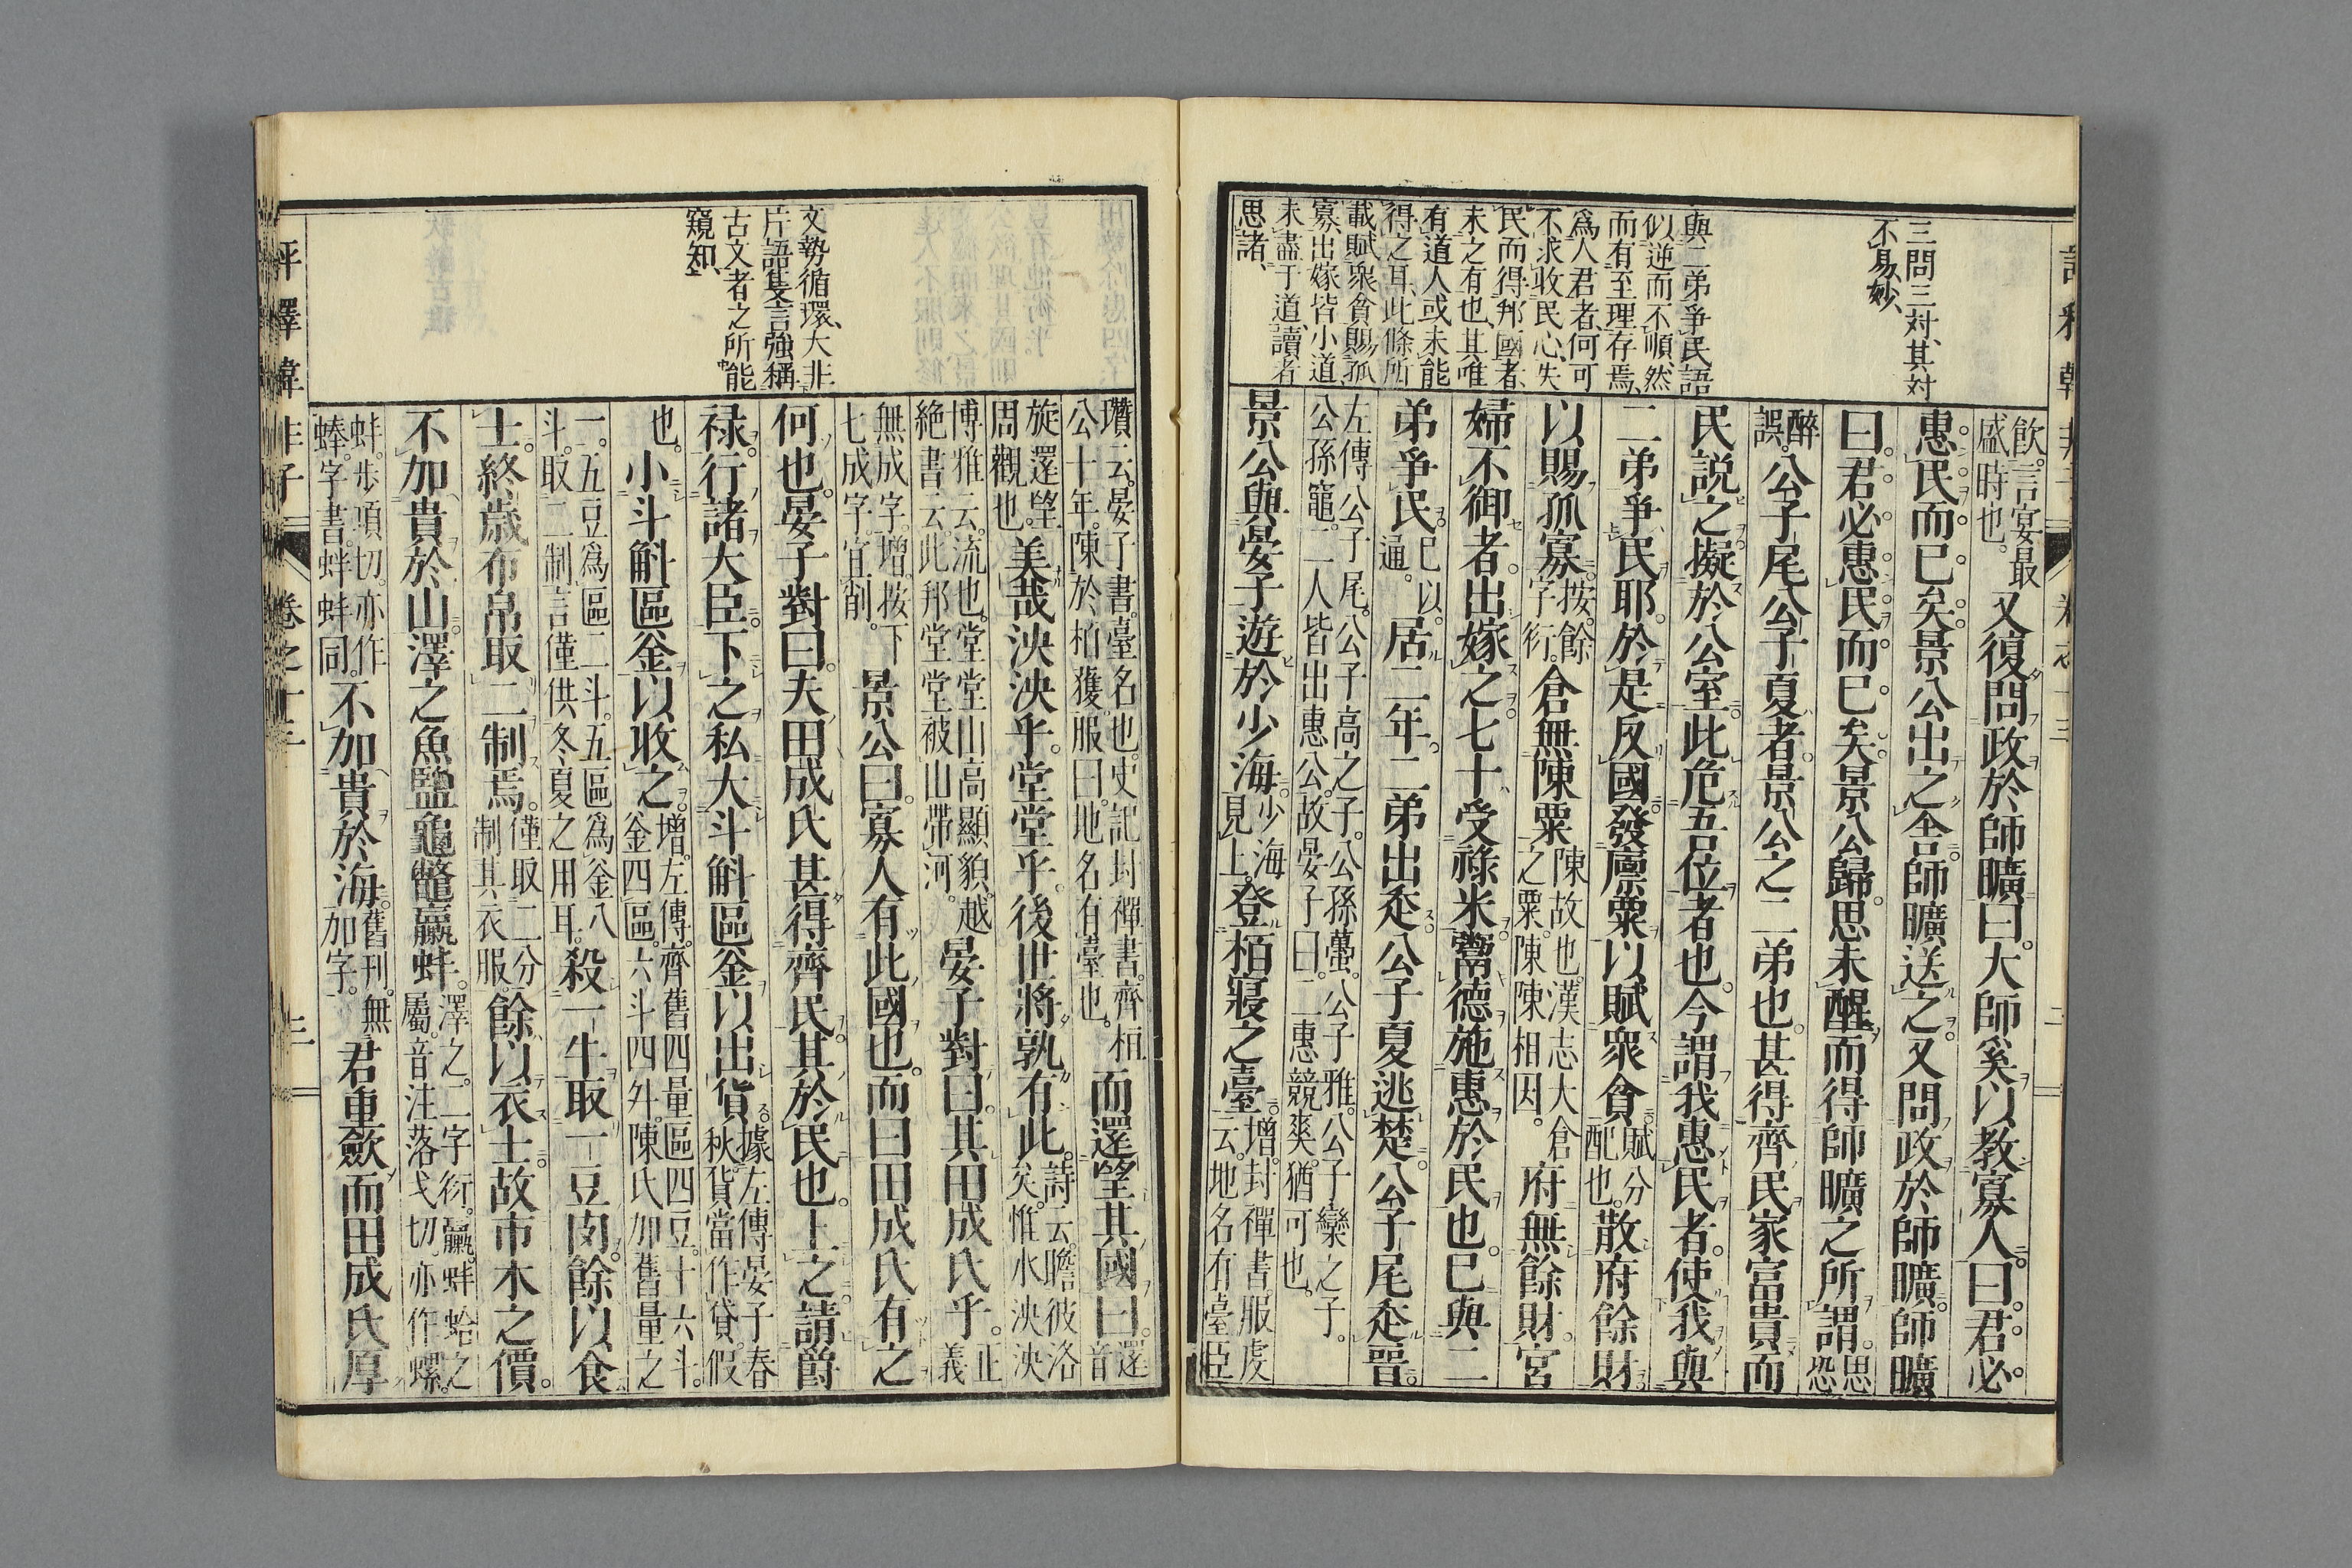 三問三対、其対
不易、妙、
與二弟爭民語
似逆而不順、然
而有至理存焉、
爲人君者、何可
不求收民心、失
民而得邦國者、
未之有也、其唯
有道人或未能
得之耳、此條所
載賦衆貧賜孤
寡、出嫁皆小道、
未盡于道、讀者
思諸、
飲。言宴最
盛時也。又復問政於師曠曰。大師奚以教寡人。曰。君必
惠民而已矣。景公出之舍。師曠送之。又問政於師曠。師曠
曰。君必惠民而已矣。景公歸。思未醒而得師曠之所謂。思恐
醉
誤。公子尾公子夏者。景公之二弟也。甚得齊民。家富貴而
民說之。擬於公室。此危吾位者也。今謂我惠民者。使我與
二弟爭民耶。於是反國。發廩粟以賦衆貧。賦分
配也。散府餘財
以賜孤寡。按。餘
字衍。倉無陳粟陳故也。漢志大倉
之粟。陳陳相因。府無餘財。宮
婦不御者。出嫁之。七十受祿米。鬻德施惠於民也。已與二
弟爭民。已以
通。居二年。二弟出走。公子夏逃楚。公子尾走晉。
左傳公子尾。公子高之子。公孫蠆。公子雅。公子欒之子。
公孫竈。二人皆出惠公。故晏子曰。二惠競爽。猶可也。
景公與晏子遊於少海。少海
見上。登栢寢之臺。增。封禪書。服虔
云。地名有臺臣
評釋韓非子 卷之十三 三
文勢循環、大非
片語隻言強稱
古文者之所能
窺知、
瓚云。晏子書。臺名也。史記封禪書。齊桓
公十年。陳於柏獲。服曰。地名有臺也。而還望其國曰。還音
旋。還望。
周觀也。美哉泱泱乎。堂堂乎。後世將孰有此。詩云。瞻彼洛
矣。惟水泱泱
博雅云。流也。堂堂山高顯貌。越
絶書云。此邦堂堂被山帶河。晏子對曰。其田成氏乎。正義
無成字。增。按。下
七成字宜削。景公曰。寡人有此國也。而曰田成氏有之
何也。晏子對曰。夫田成氏甚得齊民。其於民也。上之請爵
祿。行諸大臣。下之私大斗斛區釜以出貨。據左傳晏子春
秋。貨當作貸。假
也。小斗斛區釜以收之。增。左傳。齊舊四量區四豆。十六斗。
釜四區。六斗四升。陳氏加舊量之
一。五豆爲區二斗。五區爲釜八
斗。取二制言僅供冬夏之用耳。殺一牛取一豆肉。餘以食
士。終歳布帛取二制焉。僅取二分
制其衣服。餘以衣士。故市木之價。
不加貴於山。澤之魚鹽龜鼈蠃蚌。澤之。二字衍。蠃蚌蛤之
屬。音注落戈切。亦作螺。
蚌。步項切。亦作
蜯。字書。蚌蚌同。不加貴於海。舊刊。無
加字。君重斂而田成氏厚